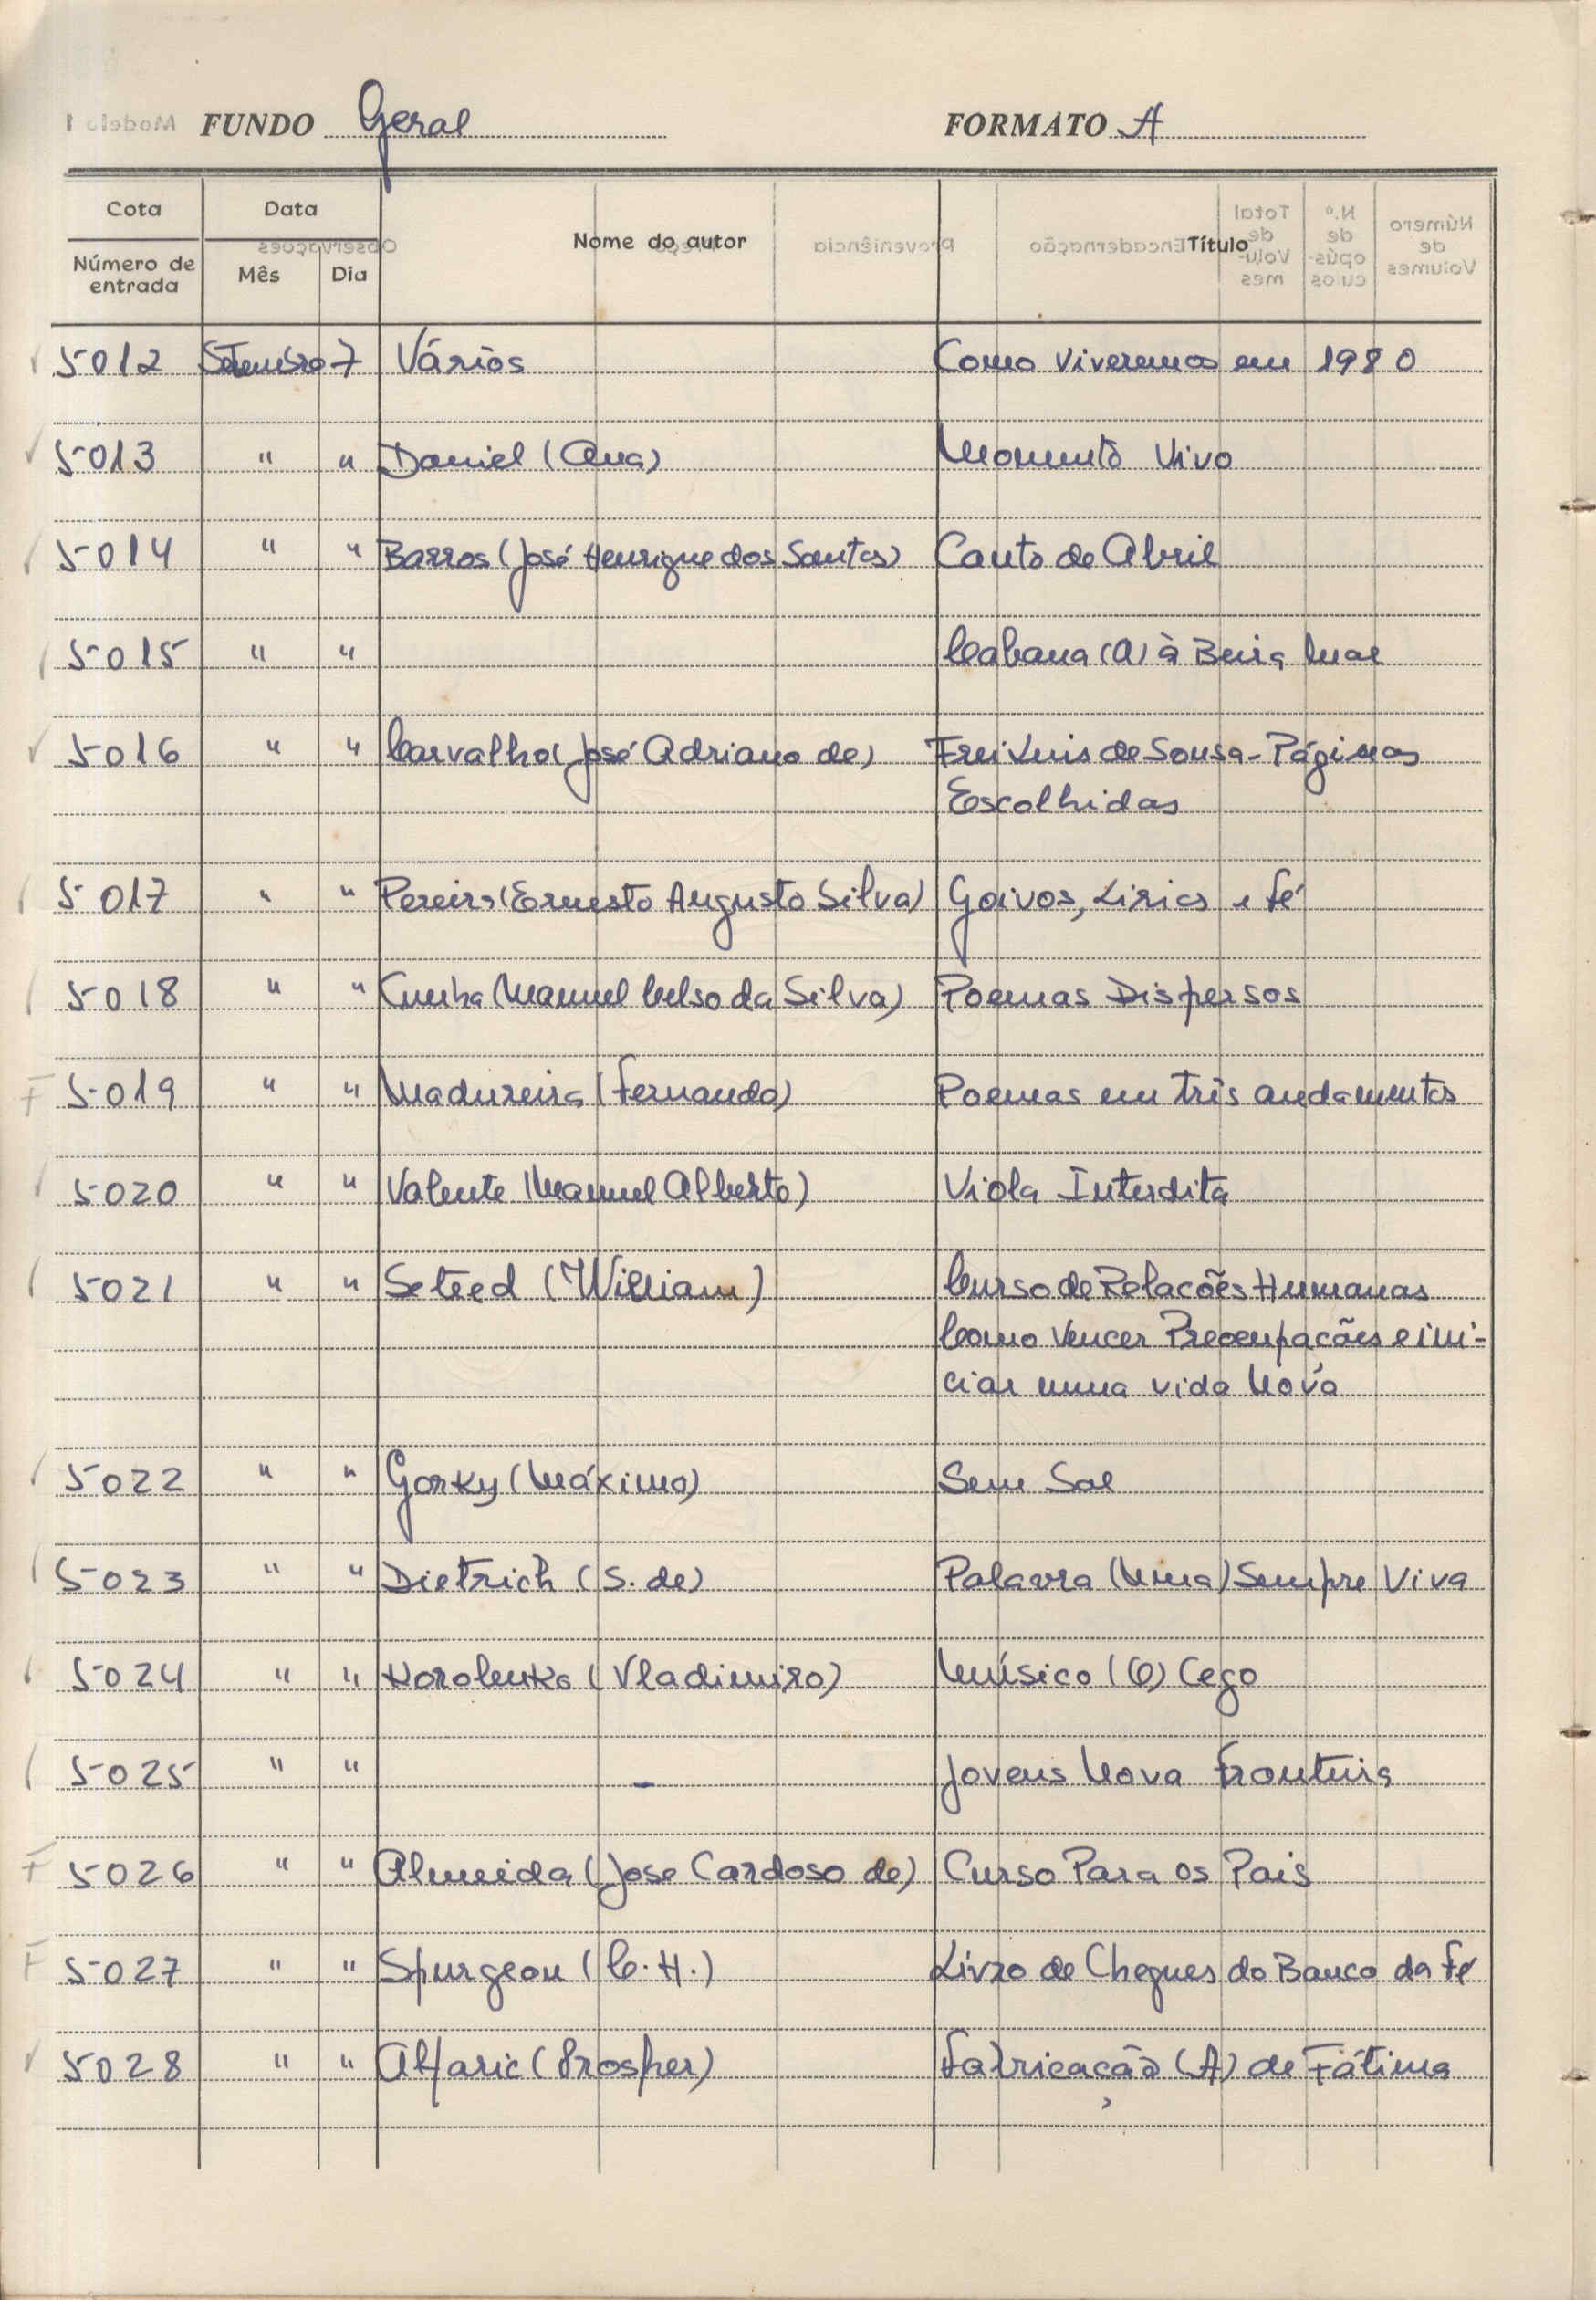 FUNDO Geral FORMATO A
Cota Data Nome do autor Título
Número de entrada Mês Dia
5012 Setembro 7 Vários Como Viveremos em 1980
5013 " " Daniel (Ana) Momento Vivo
5014 " " Barros (José Henrique dos Santos) Canto de Abril
5015 " " Cabana (A) à Beira Mar
5016 " " Carvalho (José Adriano de) Frei Luis de Sousa - Páginas
Escolhidas
5017 " " Pereira (Ernesto Augusto Silva) Goivos, Lirios e fé
5018 " " Cunha (Manuel Celso da Silva) Poemas Dispersos
5019 " " Madureira (Fernando) Poemas em três andamentos
5020 " " Valente (Manuel Alberto) Viola Interdita
5021 " " Seteed (William) Curso de Relacões Humanas
Como Vencer Preocupacões e ini-
ciar uma vida Nova
5022 " " Gorky (Máximo) Sem Sol
5023 " " Dietrich (S. de) Palavra (Uma) Sempre Viva
5024 " " Korolenko (Vladimiro) Músico (O) Cego
5025 " " - Jovens Nova Fronteira
5026 " " Almeida (Jose Cardoso de) Curso Para os Pais
5027 " " Spurgeon (C. H.) Livro de Cheques do Banco da Fé
5028 " " Alfaric (Prosper) Fabricação (A) de Fátima